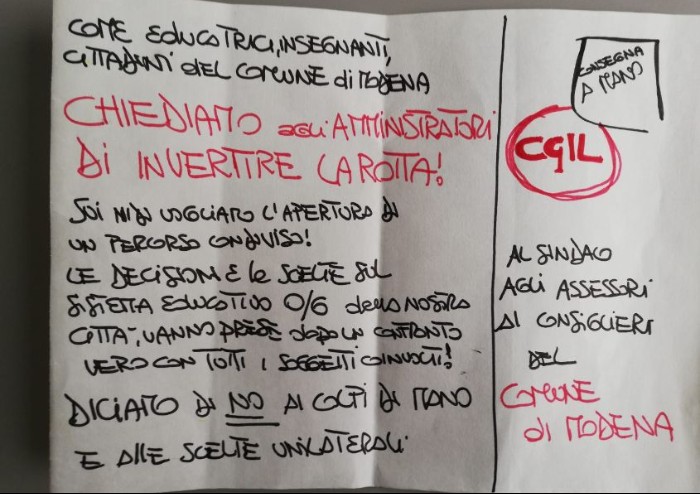 COME EDUCATRICI, INSEGNANTI,
CITTADINI DEL COMUNE di MODENA
CHIEDIAMO agli AMMINISTRATORI
Di INVERTIRE LA ROTTA!
SUI NIDI VOGLIAMO L'APERTURA DI
UN PERCORSO CONDIVISO!
LE DECISIONI E le SCELTE SUL
SISTEMA EDUCATIVO 0/6 della NOSTRA
CITTA', VANNO PRESE dopo UN CONFRONTO
VERO CON TUTTI I SOGGETTI COINVOLTI!
DICIAMO DI NO AI COLPI DI MANO
E ALLE SCELTE UNILATERALI
CONSEGNA
A MANO
CGIL
AL SINDACO
AGLI ASSESSORI
AI CONSIGLIERI
DEL
COMUNE
di MODENA